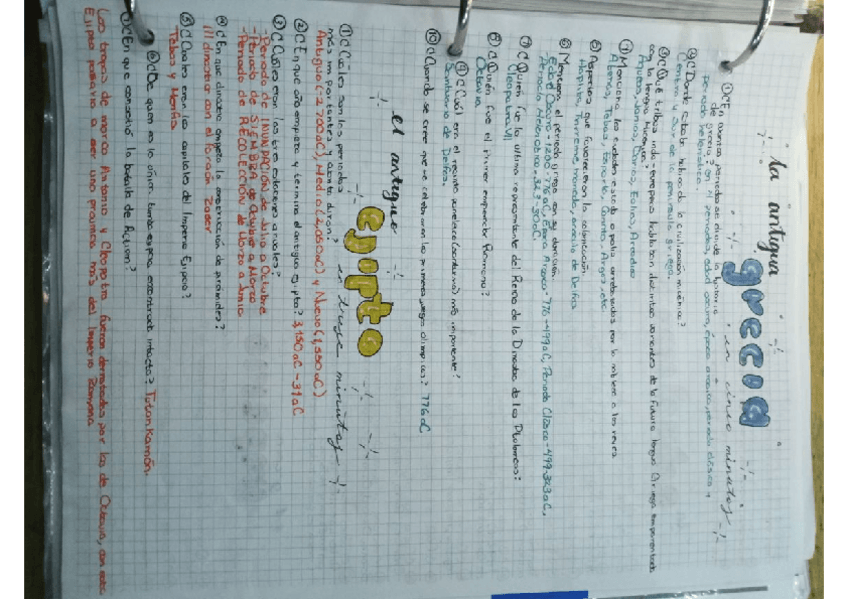 la antigua
grecia
en cinco minutos
① ¿En cuantos periodos se divide la historia
de grecia? en 4 periodos, edad oscura, época arcaica, periodo clásico y
periodo helenístico.
② ¿Donde estaba habitada la civilización micénica?
Centro y sur de la península griega.
③ ¿Qué tribus indo-europeas hablaban distintas variantes de la futura lengua Griega emparentada
con la lengua micénica?
Aqueos, Jonios, Dorios, Eolios, Arcadios
④ Menciona las ciudades estado o polis arrebatadas por la nobleza a los reyes
Atenas, Tebas, Esparta, Corinto, Argos, etc
⑤ Aspectos que favorecieron la colonización
Hoplitas, Trirreme, moneda, oráculo de Delfos
⑥ Menciona el periodo griego en su duración.
Edad Oscura - 1200-776 aC, Época Arcaica - 776-499 aC, Periodo Clásico - 499-323 aC,
⑦ ¿Quién fue la última representante del Reino de la Dinastía de los Ptolomeos?
Cleopatra VII
⑧ ¿Quién fue el primer emperador Romano?
Octavio
⑨ ¿Cuál era el recinto más importante?
Santuario de Delfos.
⑩ ¿Cuando se cree que se celebraron los primeros juegos olímpicos? 776 aC
el antiguo
egipto
en cinco minutos
① ¿Cuáles son los periodos
más importantes y cuanto duran?
Antiguo (-2.700aC), Medio (-2,050aC) y Nuevo (1,550aC)
② ¿En qué año empieza y termina el antiguo egipto? 3,150 aC - 31 aC
③ ¿Cuáles eran las tres estaciones anuales?
-Periodo de INUNDACIÓN de Junio a Octubre
-Periodo de SIEMBRA de Octubre a Marzo
-Periodo de RECOLECCIÓN de Marzo a Junio
④ ¿En que dinastía empieza la construcción de pirámides?
III dinastía con el faraón Zoser
⑤ ¿Cuales eran las capitales del Imperio Egipcio?
Tebas y Menfis
⑥ ¿De quien es la única tumba egipcia encontrada intacta? Tutankamón.
⑦ ¿En que consistió la batalla de Action?
Las tropas de marco Antonio y Cleopatra fueron derrotadas por las de Octavio, con esto
Egipto pasaría a ser una provincia más del Imperio Romano